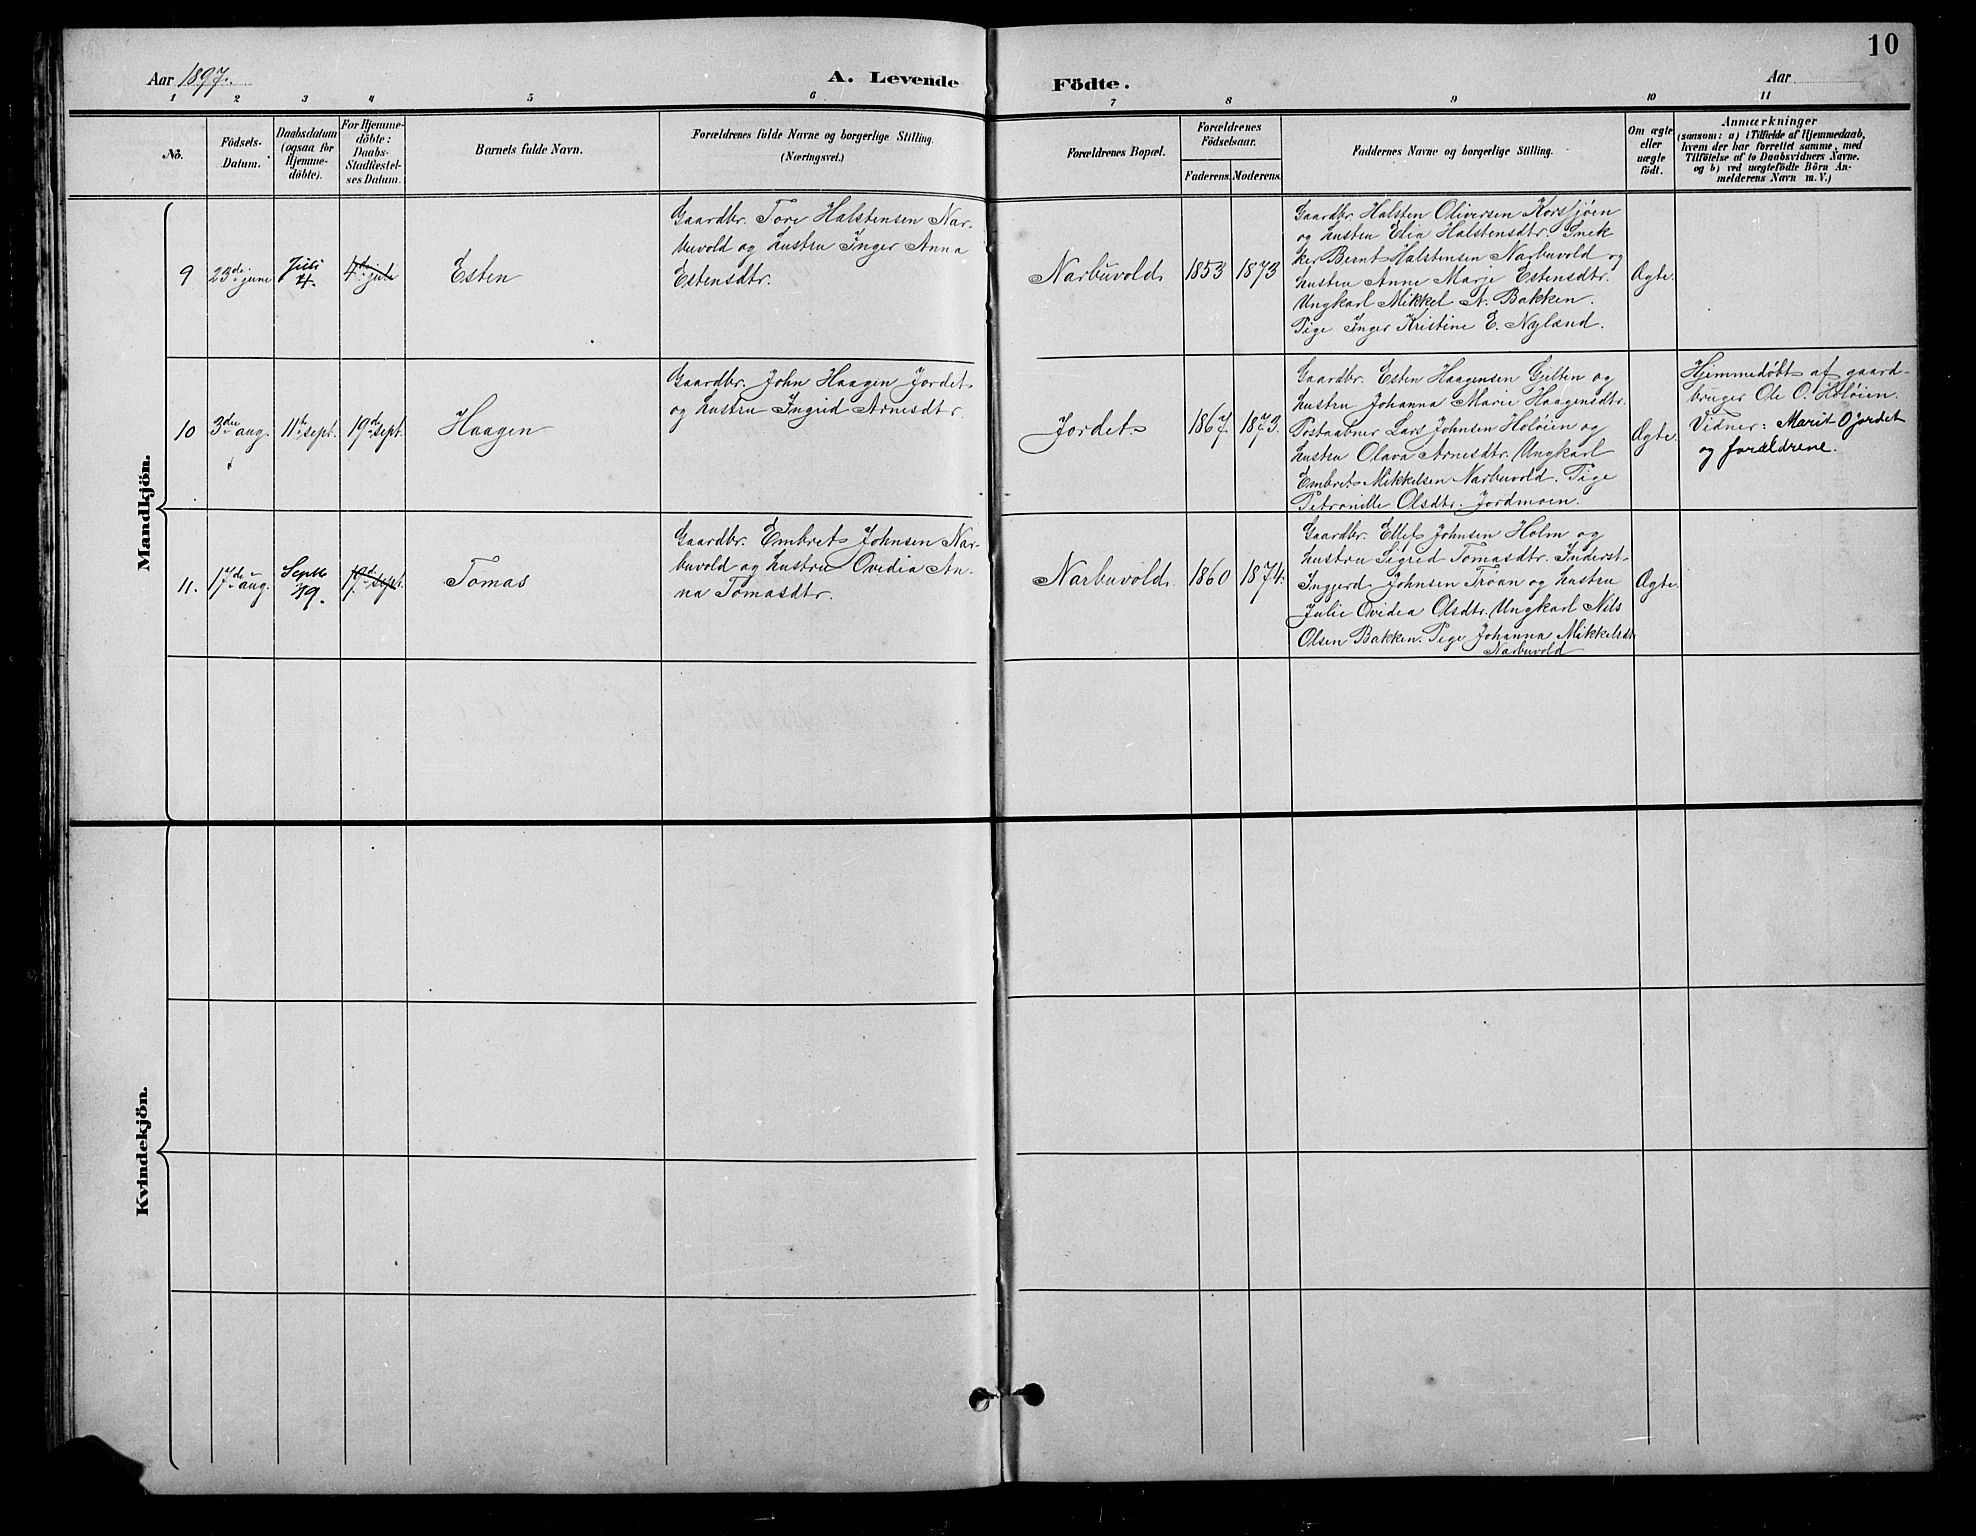 10
Aar 1897.
A. Levende Födte.
Aar
1 2 3 4 5 6 7 8 9 10 11
No.
Födsels-
Datum.
Daabsdatum
(ogsaa for
Hjemme-
döbte).
For Hjemme-
döbte:
Daabs-
Stadfæstel-
ses Datum.
Barnets fulde Navn.
Forældrenes fulde Navne og borgerlige Stilling.
(Næringsvei.)
Forældrenes Bopæl.
Forældrenes
Födselsaar.
Faderens. Moderens.
Faddernes Navne og borgerlige Stilling.
Om ægte
eller
uægte
födt.
Anmærkninger
(saasom: a) i Tilfælde af Hjemmedaab,
hvem der har forrettet samme, med
Tilföielse af to Daabsvidners Navne,
og b) ved uægtefödte Börn An-
melderens Navn m. V.)
Mandkjön.
9
23de june
Juli
4.
4de jule
Esten
Gaardbr. Tore Halstensen Nar-
buvold og hustru Inger Anna
Estensdtr.
Narbuvold
1853
1873
Gaardbr. Halsten Oliversen Korssjöen
og hustru Elia Halstensdtr. Snek
ker Bernt Halstensen Narbuvold og
hustru Anne Marje Estensdtr.
Ungkarl Mikkel A. Bakken.
Pige Inger Kristine E. Nyland.
Ægte.
10
3die aug.
11te sept.
19de sept.
Haagen
Gaardbr. John Haagen Jordet
og hustru Ingrid Arnesdtr.
Jordet
1867.
1873.
Gaardbr. Esten Haagensen Gjelten og
hustru Johanna Marie Haagensdtr.
Postaabner Lars Johnsen Holöien og
hustru Olava Arnesdtr. Ungkarl
Embret Mikkelsen Narbuvold. Pige
Petronille Olsdtr. Jordmoen.
Ægte.
Hjemmedöbt af gaard-
bruger Ole O. Holöien.
Vidner: Marit O Jordet
og forældrene.
11.
17de aug.
Septb
19.
19de sept.
Tomas
Gaardbr. Embret Johnsen Nar-
buvold og hustru Ovidia An-
na Tomasdtr.
Narbuvold
1860
1874.
Gaardbr. Ellef Johnsen Holm og
hustru Sigrid Tomasdtr. Inderst
Ingjerd Johnsen Tröan og hustru
Julie Ovidea Olsdtr. Ungkarl Nils
Olsen Bakken. Pige Johanna Mikkelsdtr
Narbuvold
Ægte.
Kvindekjön.